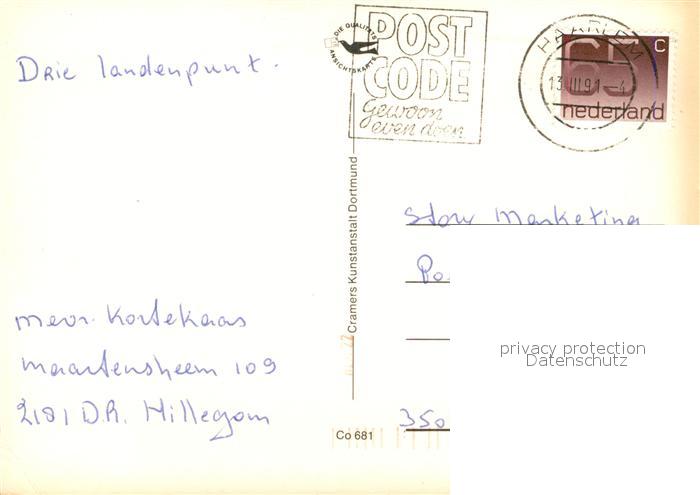 Drie landenpunt.
DIE QUALITÄTS
ANSICHTSKARTE
POST
CODE
Gewoon
even doen
HAARLEM
13 III 91 - 4
65 C
nederland
Cramers Kunstanstalt Dortmund
Story Marketing
mevr. Kortekaas
Maartensheem 109
2181 D.R. Hillegom
350
Co 681
privacy protection
Datenschutz